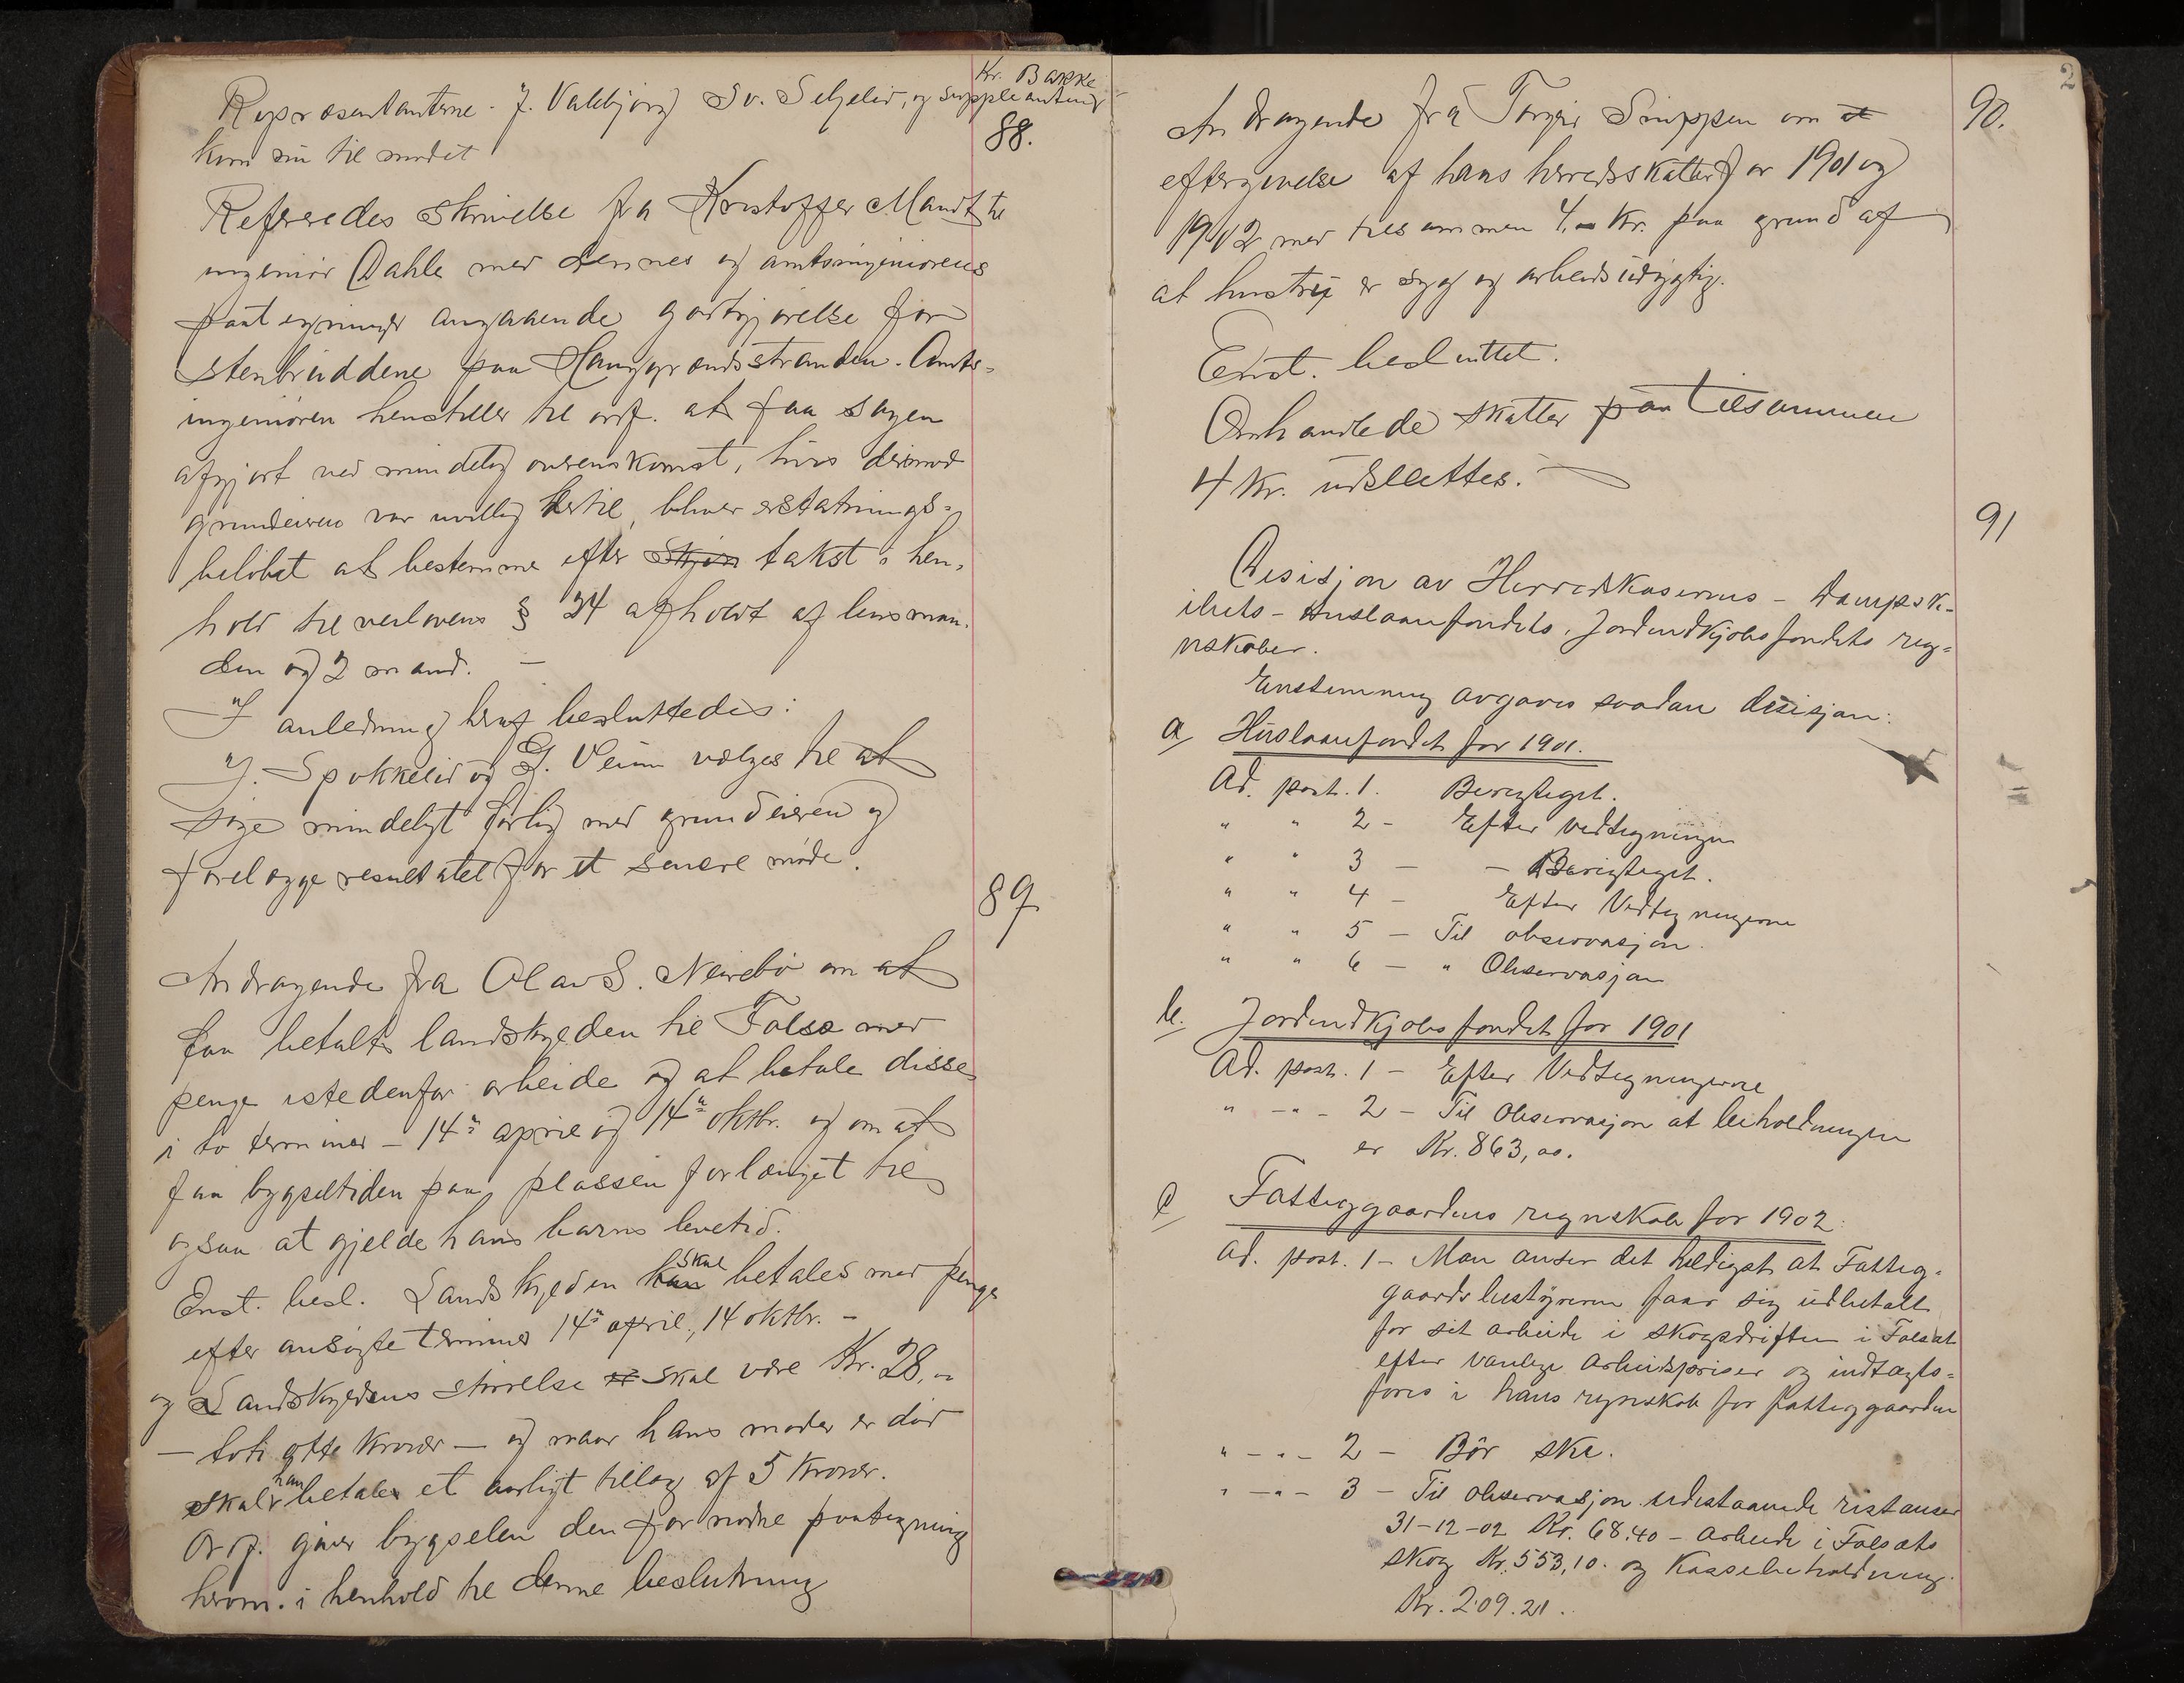 Repræsentanterne J. Valebjørg Sv. Seljelid, og suppleanten Kr. Bakke
kom nu til mødet
88.
Refereredes skrivelse fra Kristoffer Mandt til
ingeniør Dahle med dennes og amtsingeniørens
paategninger angaaende godtgjørelse for
stenbruddene paa Hauggrandsstranden. Amts-
ingeniøren henstiller til ordf. at faa sagen
afgjort ved mindelig overenskomst, hvis derimod
grundeieren var uvillig hertil, bliver erstatnings-
beløbet at bestemme efter skjøn takst i hen-
hold til veilovens § 34 afholdt af lensman-
den og 2 mand. –
I anledning heraf besluttedes:
J. Spokkelid og G. Veum vælges til at
søge mindeligt forlig med grundeieren og
forelægge resultatet for et senere møde.
89.
Andragende fra Olav S. Neirebø om at
faa betalt landskylden til Folsæ med
penge istedenfor arbeide og at betale disse
i to terminer – 14de april og 14de oktbr. og om at
faa bygseltiden paa plassen forlænget til
ogsaa at gjelde hans barns levetid.
Enst. besl. Landskylden kan skal betales med penge
efter ansøgte terminer 14de april, 14 oktbr. –
og Landskyldens størrelse skal være Kr. 28,–
– toti otte kroner – og naar hans moder er død
skal han betale et aarligt tillæg af 5 kroner.
Ordf. giver bygselen den fornødne paategning
herom i henhold til denne beslutning
2
90.
Andragende fra Torgeir Smippen om et
eftergivelse af hans herredsskatter for 1901 og
1902 med tilsammen 4,– Kr. paa grund af
at hustru er syg og arbeidsudygtig.
Enst. besluttet.
Omhandlede skatter paa tilsammen
4 Kr. udslettes.
91
Desisjon av Herredskasernes – Dampsk-
ibets – Huslaanfondets, Jordindkjøbsfondets reg-
nskaber.
Enstemmig avgaves saadan desisjon:
a Huslaanfondet for 1901.
Ad. post. 1. Berigtiget.
" " 2 – Efter Vedtegningen
" " 3 – – Berigtiget.
" " 4 – Efter Vedtegningerne
" " 5 – Til observasjon.
" " 6 – " Observasjon
b. Jordindkjøbsfondet for 1901
Ad. post. 1 – Efter Vedtegningerne
" – " – 2 – Til Observasjon at beholdningen
er Kr. 863,00.
c Fattiggaardens regnskab for 1902:
Ad. post. 1 – Man anser det heldigst at Fattig-
gaardsbestyreren faar sig udbetalt
for sit arbeide i skogsdriften i Folsæt
efter vanlige arbeidspriser og indtægts-
føres i hans regnskab for fattiggaarden
" – " – 2 – Bør ske.
" – " – 3 – Til Observasjon udestaaende restanser
31-12-02 Kr. 68.40 – arbeide i Folsæts
skog Kr. 553,10. og Kassebeholdning
Kr. 209.21..